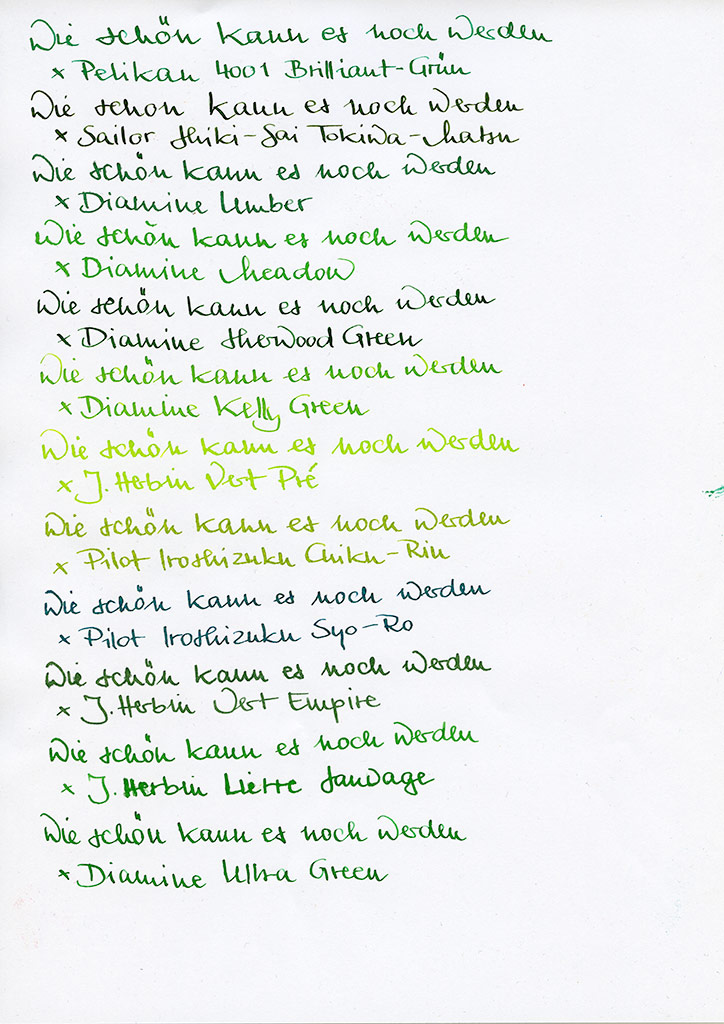 Wie schön kann es noch werden
x Pelikan 4001 Brilliant-Grün
Wie schon kann es noch werden
x Sailor Shiki-Sai Tokiwa-Matsu
Wie schön kann es noch werden
x Diamine Umber
Wie schön kann es noch werden
x Diamine Meadow
Wie schön kann es noch werden
x Diamine Sherwood Green
Wie schön kann es noch werden
x Diamine Kelly Green
Wie schön kann es noch werden
x J. Herbin Vert Pré
Wie schön kann es noch werden
x Pilot Iroshizuku Chiku-Rin
Wie schön kann es noch werden
x Pilot Iroshizuku Syo-Ro
Wie schön kann es noch werden
x J. Herbin Vert Empire
Wie schön kann es noch werden
x J. Herbin Lierre Sauvage
Wie schön kann es noch werden
x Diamine Ultra Green